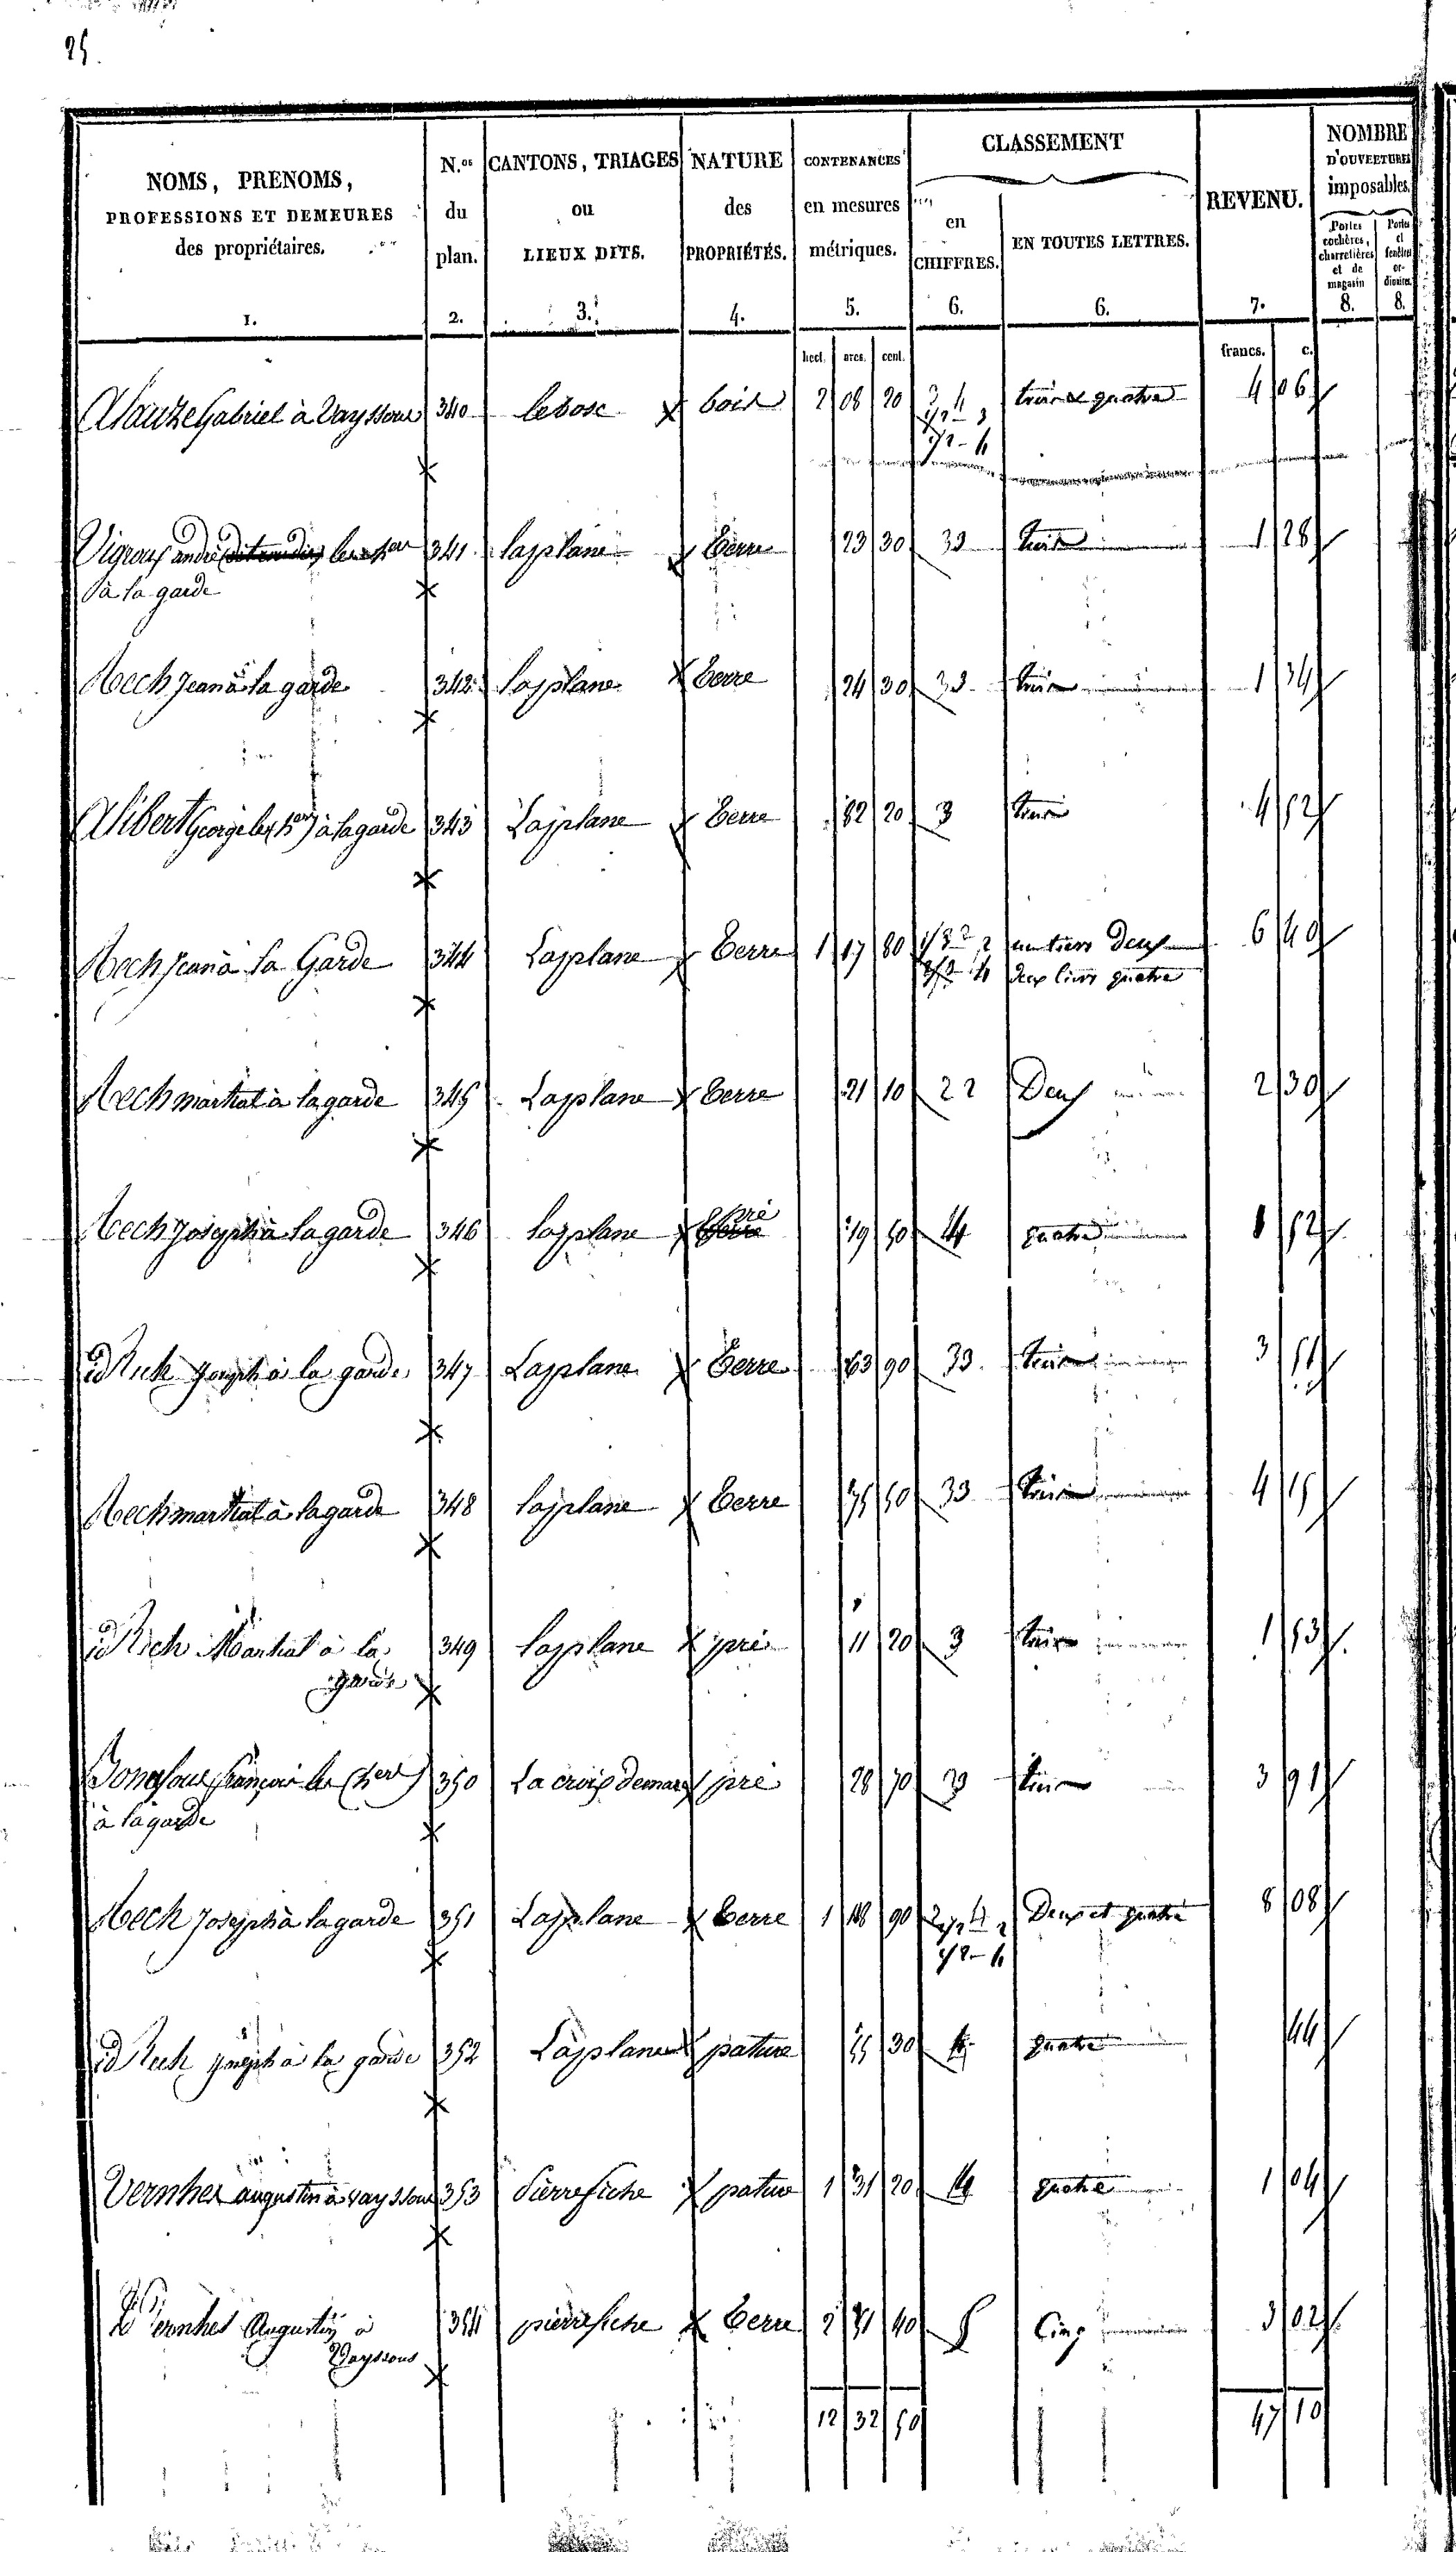 25.
NOMS, PRENOMS,
PROFESSIONS ET DEMEURES
des propriétaires.
1.
N.os
du
plan.
2.
CANTONS, TRIAGES
ou
LIEUX DITS.
3.
NATURE
des
PROPRIÉTÉS.
4.
CONTENANCES
en mesures
métriques.
5.
CLASSEMENT
en
CHIFFRES.
6.
EN TOUTES LETTRES.
6.
REVENU.
7.
NOMBRE
D'OUVERTURES
imposables.
Portes
cochères,
charretières
et de
magasin
8.
Portes
et
fenêtres
or-
dinaires
8.
hect. ares. cent. francs. c.
Gabriel à Vayssous 340 le bosc bois 2 08 20 3 4 trois et quatre 4 06
1/2 - 3
1/2 - 4
andré 341 laplane terre 23 30 33 trois 1 28
à la garde
Rech Jean à la garde 342 laplane terre 24 30 33 trois 1 34
Alibert George à la garde 343 Laplane terre 82 20 3 trois 4 52
Rech Jean à la Garde 344 Laplane terre 1 17 80 1/3 2 un tiers Deux 6 40
2/3 4 deux tiers quatre
Rech martial à la garde 345 Laplane terre 21 10 22 Deux 2 30
Rech Joseph à la garde 346 laplane pré 19 50 4 quatre 1 52
id Rech Joseph à la garde 347 Laplane terre 63 90 33 trois 3 51
Rech martial à la garde 348 laplane terre 75 50 33 trois 4 15
id Rech Martial à la 349 laplane pré 11 20 3 trois 1 53
garde
françois 350 La croix pré 28 70 3 trois 3 91
à la garde
Rech Joseph à la garde 351 Laplane terre 1 48 90 1/2 2 Deux et quatre 8 08
1/2 - 4
id Rech Joseph à la garde 352 Laplane pature 55 30 4 quatre 44
Vernhes augustin à vayssous 353 Pierrefiche pature 1 31 20 4 quatre 1 04
id Vernhes Augustin à 354 pierrefiche terre 2 51 40 5 Cinq 3 02
Vayssous
12 32 50 47 10